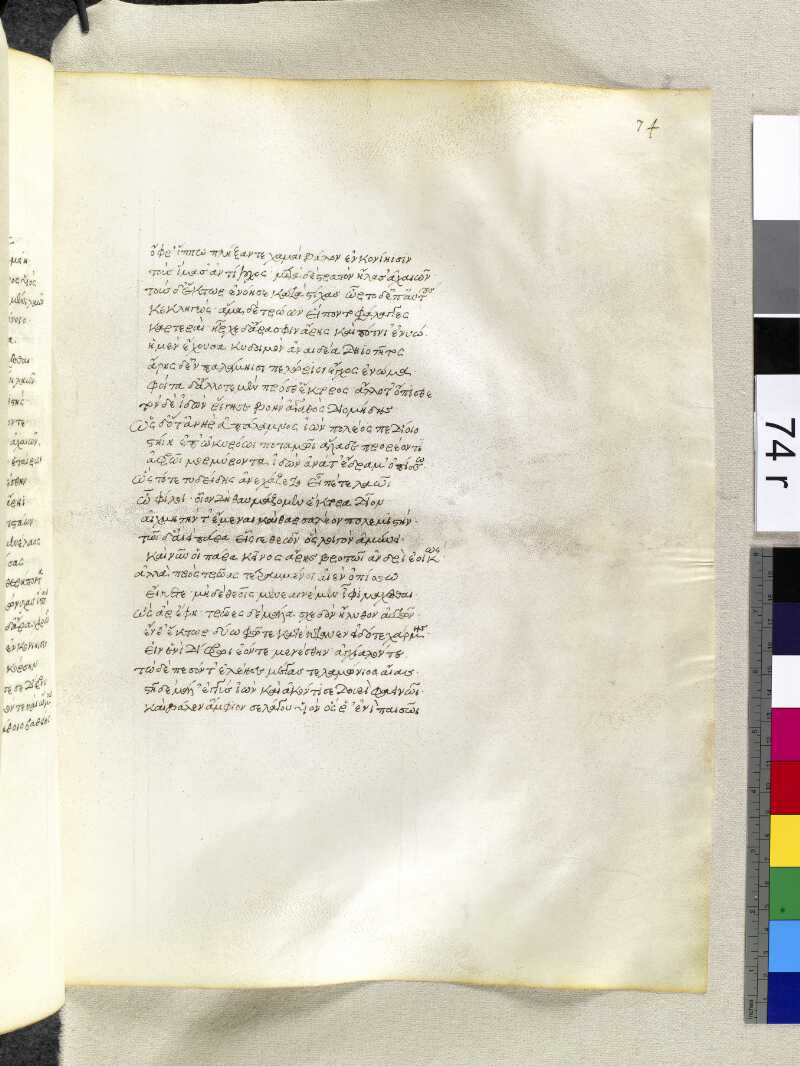 74
ὄφρ' ἵππω πλήξαντε χαμαὶ βάλον ἐν κονίηισιν
τοὺς ἵμασ' ἀντίλοχος· μετὰ δὲ στρατὸν ἤλασ' ἀχαιῶν·
τοὺς δ' ἕκτωρ ἐνόησε κατὰ στίχας· ὦρτο δ' ἐπ' αὐτούς
κεκληγώς· ἅμα δὲ τρώων εἵποντο φάλαγγες
καρτεραί· ἦρχε δ' ἄρα σφιν ἄρης καὶ πότνι' ἐνυώ·
ἡ μὲν ἔχουσα κυδοιμὸν ἀναιδέα δηϊοτῆτος
ἄρης δ' ἐν παλάμηισι πελώριον ἔγχος ἐνώμα
φοίτα δ' ἄλλοτε μὲν πρόσθ' ἕκτορος ἄλλοτ' ὄπισθε
τὸν δὲ ἰδὼν ῥίγησε βοὴν ἀγαθὸς διομήδης
ὡς δ' ὅτ' ἀνὴρ ἀπάλαμνος ἰὼν πολέος πεδίοιο
στήηι ἐπ' ὠκυρόωι ποταμῶι ἅλαδε προρέοντι
ἀφρῶι μορμύροντα ἰδὼν ἀνά τ' ἔδραμ' ὀπίσσω·
ὣς τότε τυδείδης ἀνεχάζετο εἶπέ τε λαῶι
ὦ φίλοι· οἷον δὴ θαυμάζομεν ἕκτορα δῖον
αἰχμητήν τ' ἔμεναι καὶ θαρσαλέον πολεμιστήν·
τῶι δ' αἰεὶ πάρα εἷς γε θεῶν ὃς λοιγὸν ἀμύνει·
καὶ νῦν οἱ πάρα κεῖνος ἄρης βροτῶι ἀνδρὶ ἐοικώς
ἀλλὰ πρὸς τρῶας τετραμμένοι αἰὲν ὀπίσσω
εἴκετε· μηδὲ θεοῖς μενεαινέμεν ἶφι μάχεσθαι
ὣς ἄρ' ἔφη· τρῶες δὲ μάλα σχεδὸν ἤλυθον αὐτῶν·
ἔνθ' ἕκτωρ δύω φῶτε κατέκτανεν εἰδότε χάρμης
εἰν ἑνὶ δίφρωι ἐόντε μενέσθην ἀγχίαλόν τε
τὼ δὲ πεσόντ' ἐλέησε μέγας τελαμώνιος αἴας·
στῆ δὲ μάλ' ἐγγὺς ἰὼν καὶ ἀκόντισε δουρὶ φαεινῶι·
καὶ βάλεν ἄμφιον σελάγου υἱὸν ὅς ῥ' ἐνὶ παισῶι
74 r